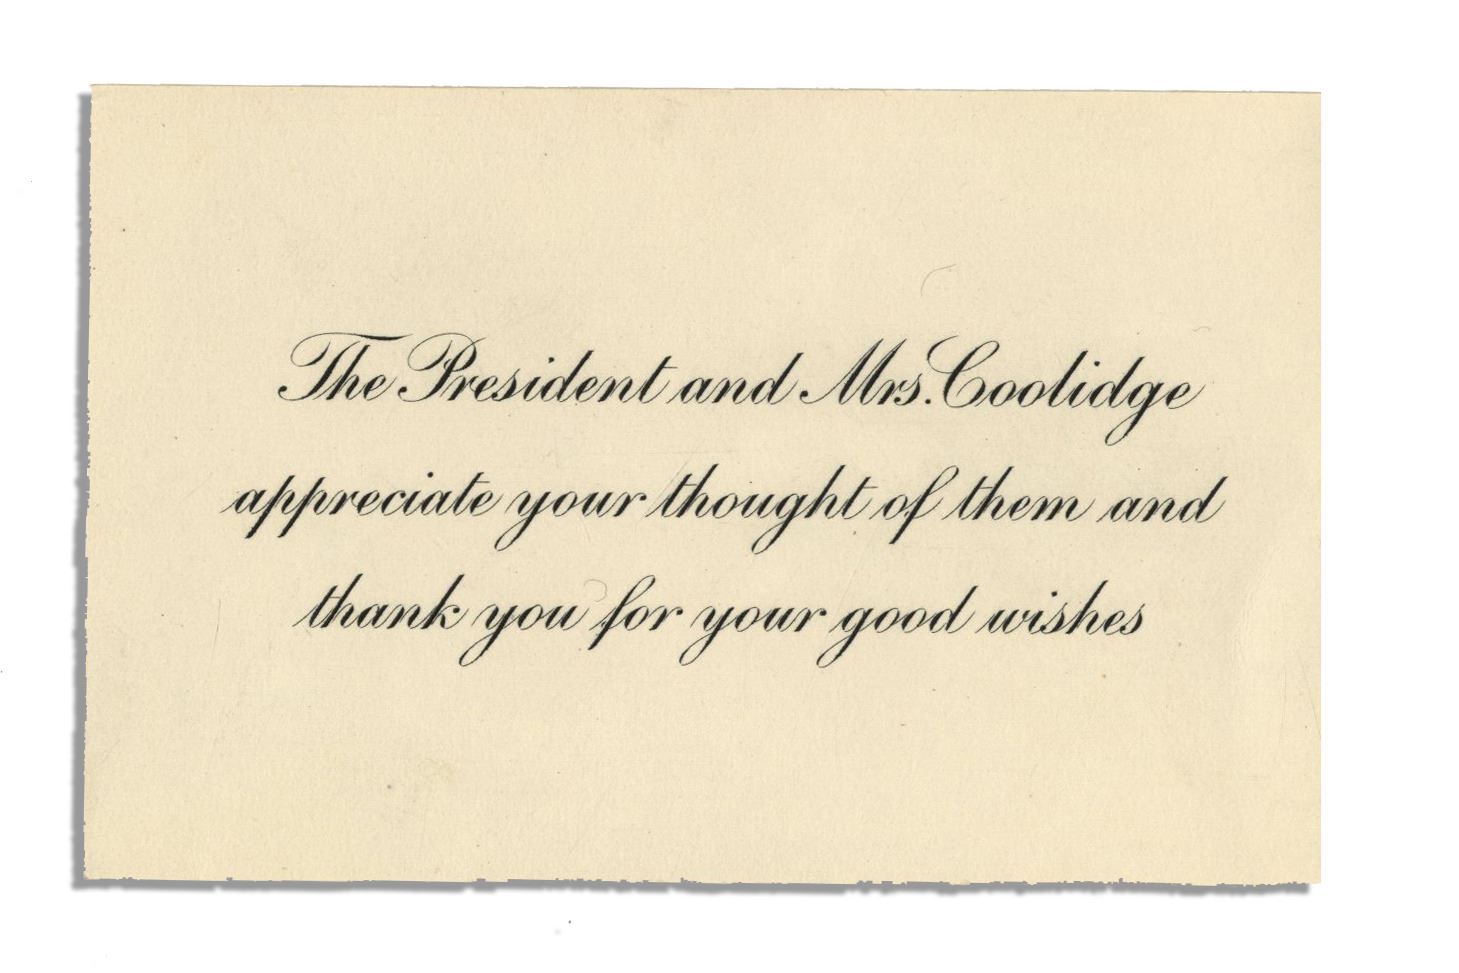 The President and Mrs. Coolidge
appreciate your thought of them and
thank you for your good wishes